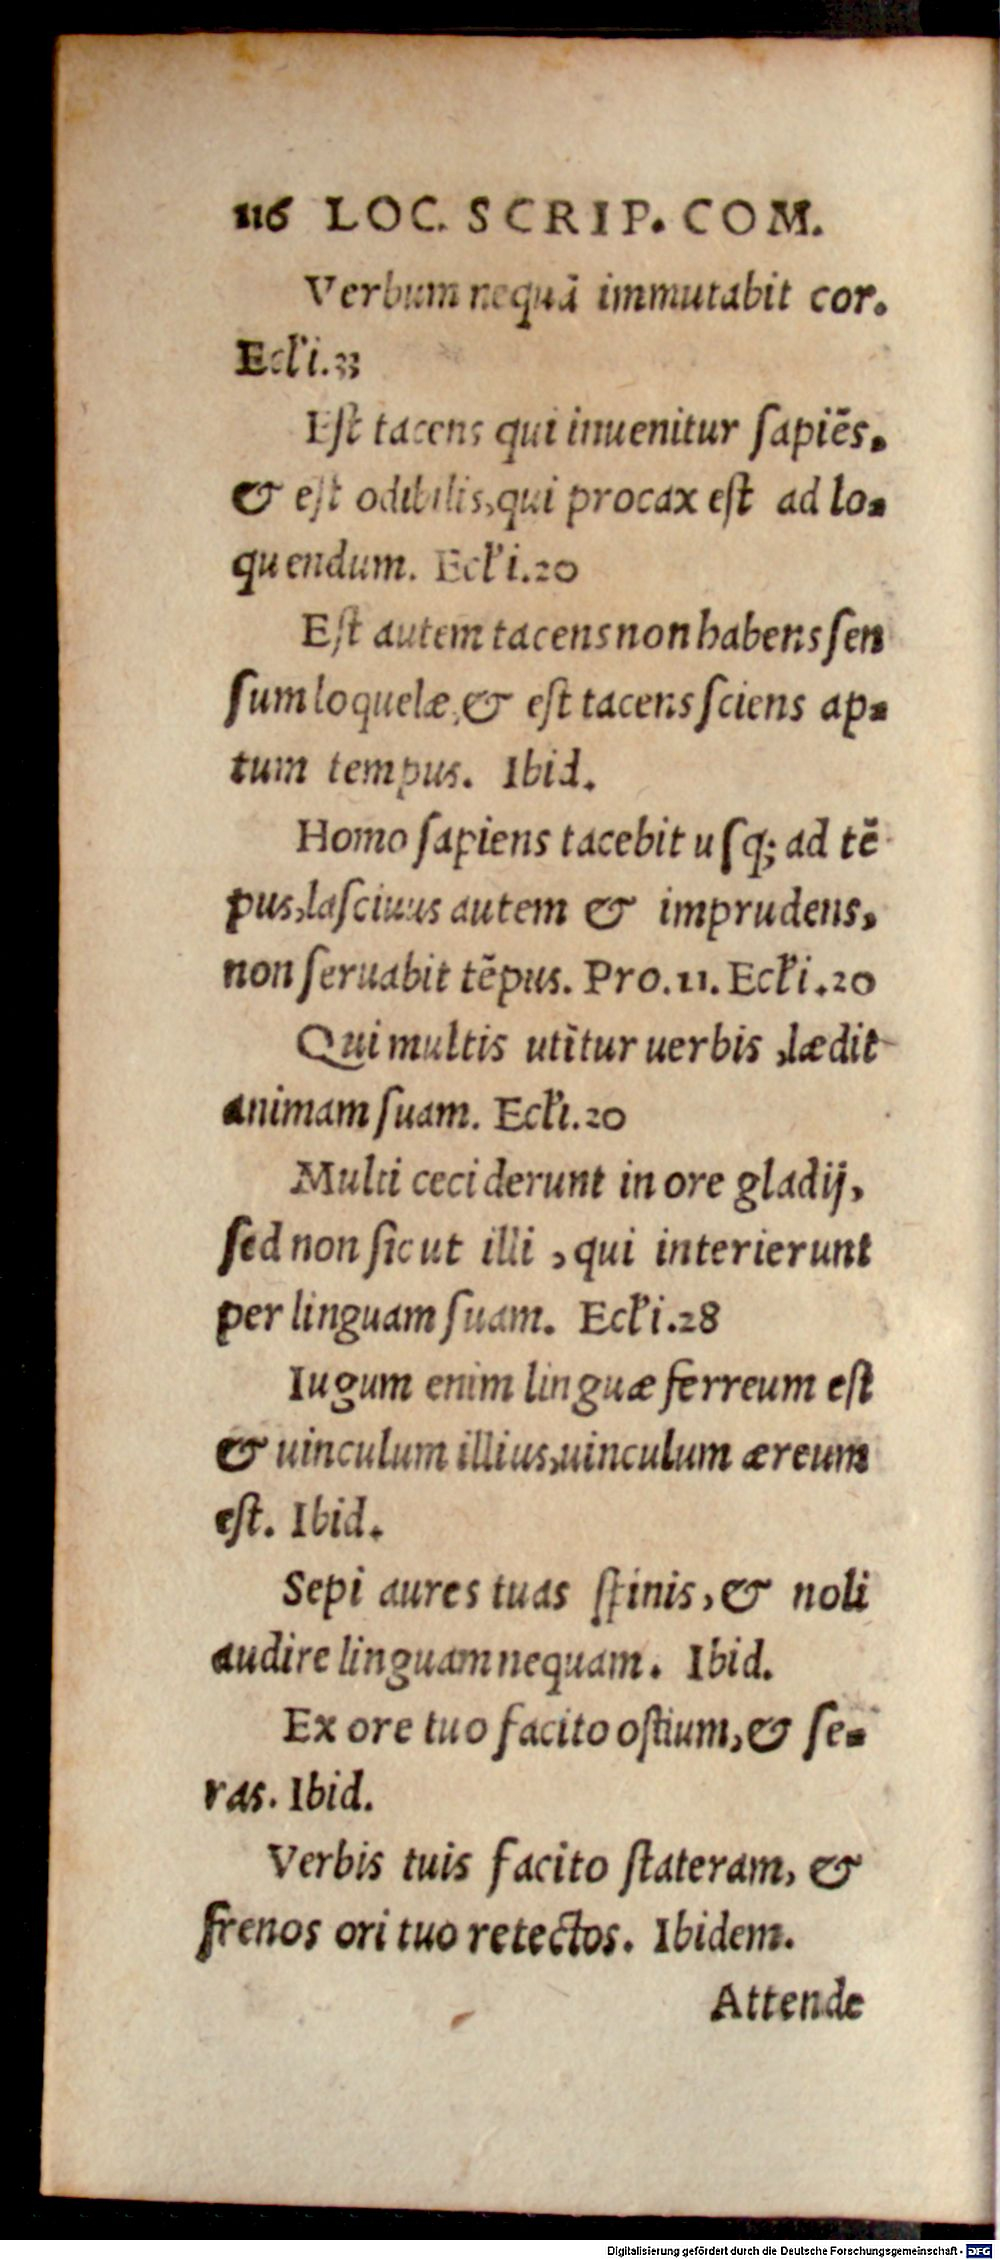 116 LOC. SCRIP. COM.
Verbum nequā immutabit cor.
Ecl'i.33
Eſt tacens qui inuenitur ſapiēs.
& eſt odibilis, qui procax eſt ad lo-
quendum. Ecl'i.20
Eſt autem tacens non habens ſen
ſum loquelæ, & eſt tacens ſciens ap-
tum tempus. Ibid.
Homo ſapiens tacebit uſq; ad tē
pus, laſciuus autem & imprudens,
non ſeruabit tēpus. Pro.11. Ecl'i.20
Qui multis utitur uerbis, lædit
animam ſuam. Ecl'i.20
Multi ceciderunt in ore gladij,
ſed non ſicut illi, qui interierunt
per linguam ſuam. Ecl'i.28
Iugum enim linguæ ferreum eſt
& uinculum illius, uinculum æreum
eſt. Ibid.
Sepi aures tuas ſpinis, & noli
audire linguam nequam. Ibid.
Ex ore tuo facito oſtium, & ſe-
ras. Ibid.
Verbis tuis facito ſtateram, &
frenos ori tuo retectos. Ibidem.
Attende
Digitalisierung gefördert durch die Deutsche Forschungsgemeinschaft - DFG